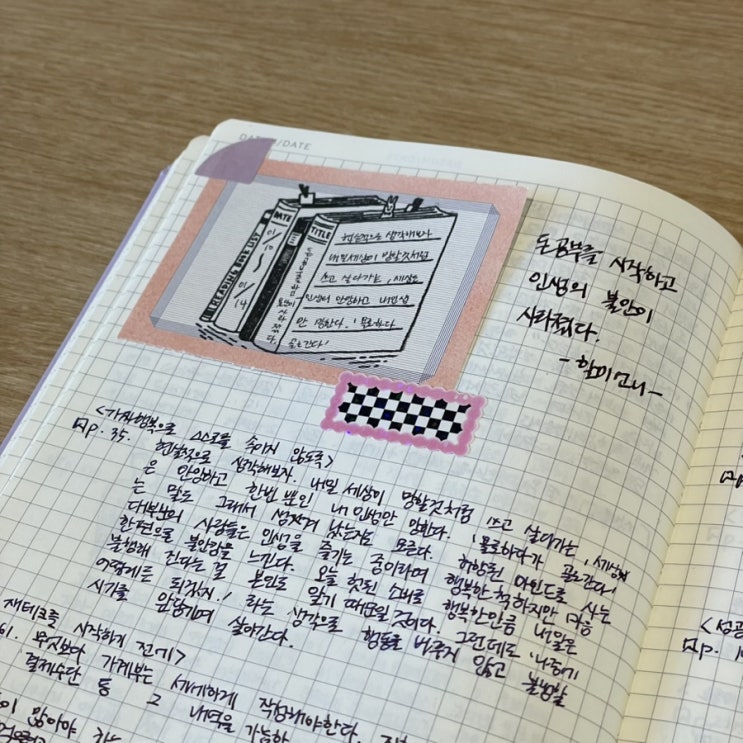 /DATE
READING BOOK LIST
DATE
01/10
~
01/14
TITLE
돈 공부를 시작하고 인생의 불안이 사라졌다.
현실적으로 생각해보자
내일 세상이 망할것처럼
쓰고 살다가는, 세상은
안녕하고 내 인생
만 망한다. '욜로하다
골로간다'
돈 공부를 시작하고
인생의 불안이
사라졌다.
- 할미언니 -
<가짜행복으로 스스로를 속이지 않도록>
p. 35. 현실적으로 생각해보자. 내일 세상이 망할것처럼 쓰고 살다가는, 세상
은 안녕하고 한번 뿐인 내 인생만 망한다. '욜로하다가 골로간다'
는 말도 그래서 생겨났는지도 모른다. 허황된 마인드로 사는
대부분의 사람들은 인생을 즐기는 중이라며 행복한척 하지만 마음
한편으로 불안함을 느낀다. 오늘 헛된 소비로 행복한만큼 내일은
불행해 진다는 걸 본인도 알기 때문일 것이다. 그런데도 '나중에
어떻게든 되겠지!' 라는 생각으로 행동을 바꾸지 않고 불행할
시기를 앞당기며 살아간다.
재테크를 시작하기 전에>
61. 무엇보다 가계부는 세세하게 작성해야한다.
결제수단 등 그 내역을 가능한
이 많아야
<성공
p. 1